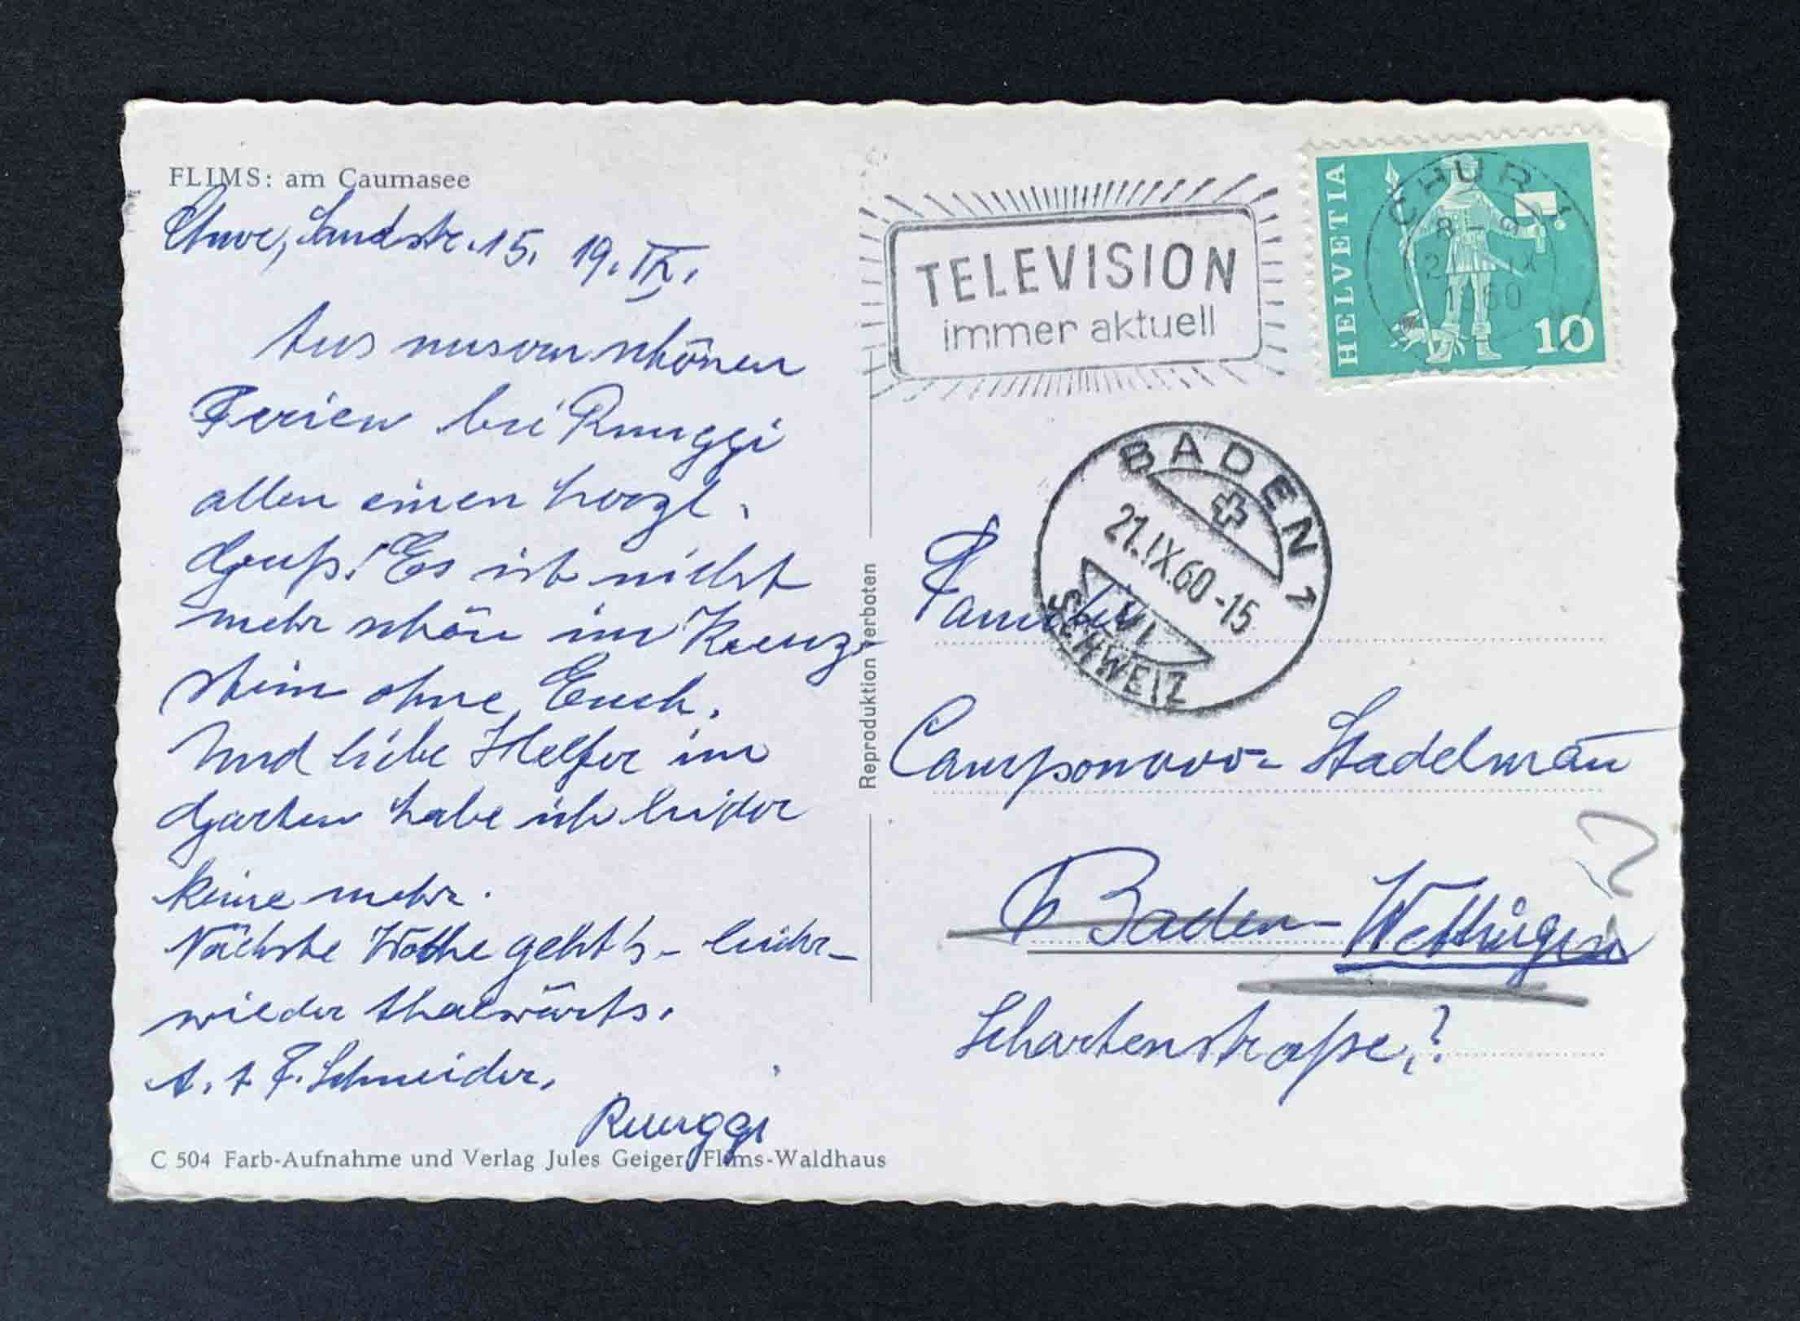 FLIMS: am Caumasee
Chur, Sandstr. 15. 19. IX.
Aus unsern schönen
Ferien bei Ruuggi
allen einen herzl.
Gruß! Es ist nicht
mehr schön im Kreuz-
stein ohne Euch.
Und liebe Helfer im
Garten habe ich leider
keine mehr.
Nächste Woche geht's - leider -
wieder thalwärts.
A. + F. Schneider.
Ruuggi
C 504 Farb-Aufnahme und Verlag Jules Geiger, Flims-Waldhaus
Reproduktion verboten
TELEVISION
immer aktuell
HELVETIA
10
CHUR 1
8 - 9
IX
BADEN 1
21.IX.60-15
VI
SCHWEIZ
Familie
Camponovo-Stadelmañ
Baden-Wettingen
Schartenstraße,?
?